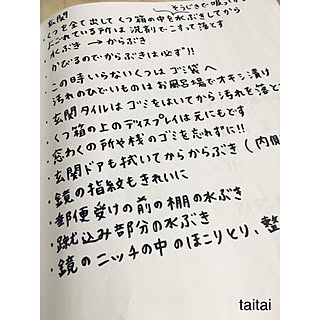 玄関
そうじきで吸って
・くつを全て出して くつ箱の中を水ぶきしてから
よごれている所は洗剤でこすって落とす
・水ぶき → からぶき
・かびるのでからぶきは必ず!!
・この時いらないくつは ゴミ袋へ
・汚れのひどいものは お風呂場でオキシ漬け
・玄関タイルは ゴミをはいてから汚れを落と
・くつ箱の上のディスプレイは元にもどす
・窓わくの所や桟のゴミを忘れずに!!
・玄関ドアも拭いてからからぶき(内側
・鏡の指紋もきれいに
・郵便受けの前の棚の水ぶき
・蹴込み部分の水ぶき
・鏡のニッチの中のほこりとり、整
taitai